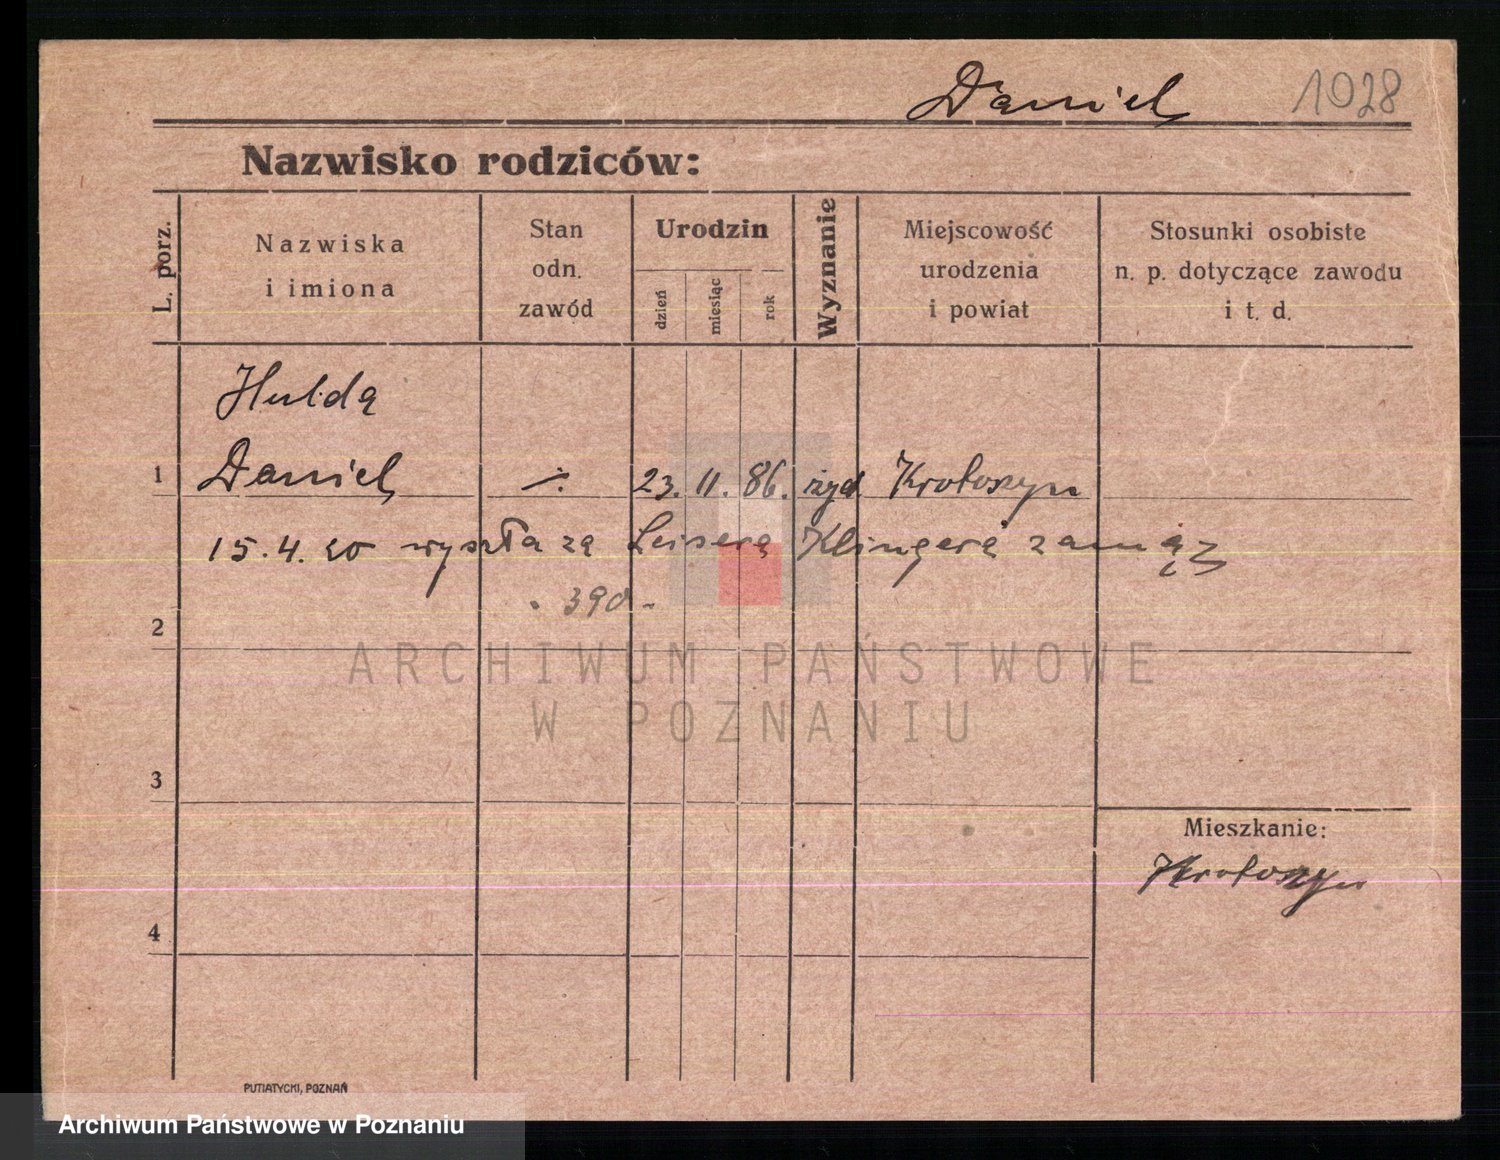 Daniel 1028
Nazwisko rodziców:
L. porz.
Nazwiska
i imiona
Stan
odn.
zawód
Urodzin
dzień
miesiąc
rok
Wyznanie
Miejscowość
urodzenia
i powiat
Stosunki osobiste
n. p. dotyczące zawodu
i t. d.
Hulda
1 Daniel ·/. 23. 11. 86. żyd Krotoszyn
15.4.20 wyszła za Leisera Klingera zamąż
- 390 -
2
ARCHIWUM PAŃSTWOWE
W POZNANIU
3
Mieszkanie:
Krotoszyn
4
PUTIATYCKI, POZNAŃ
Archiwum Państwowe w Poznaniu